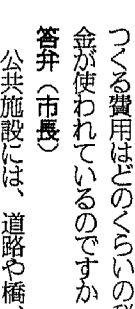 つくる費用はどのくらいの
金が使われているのですか
答弁（市長）
公共施設には、道路や橋、